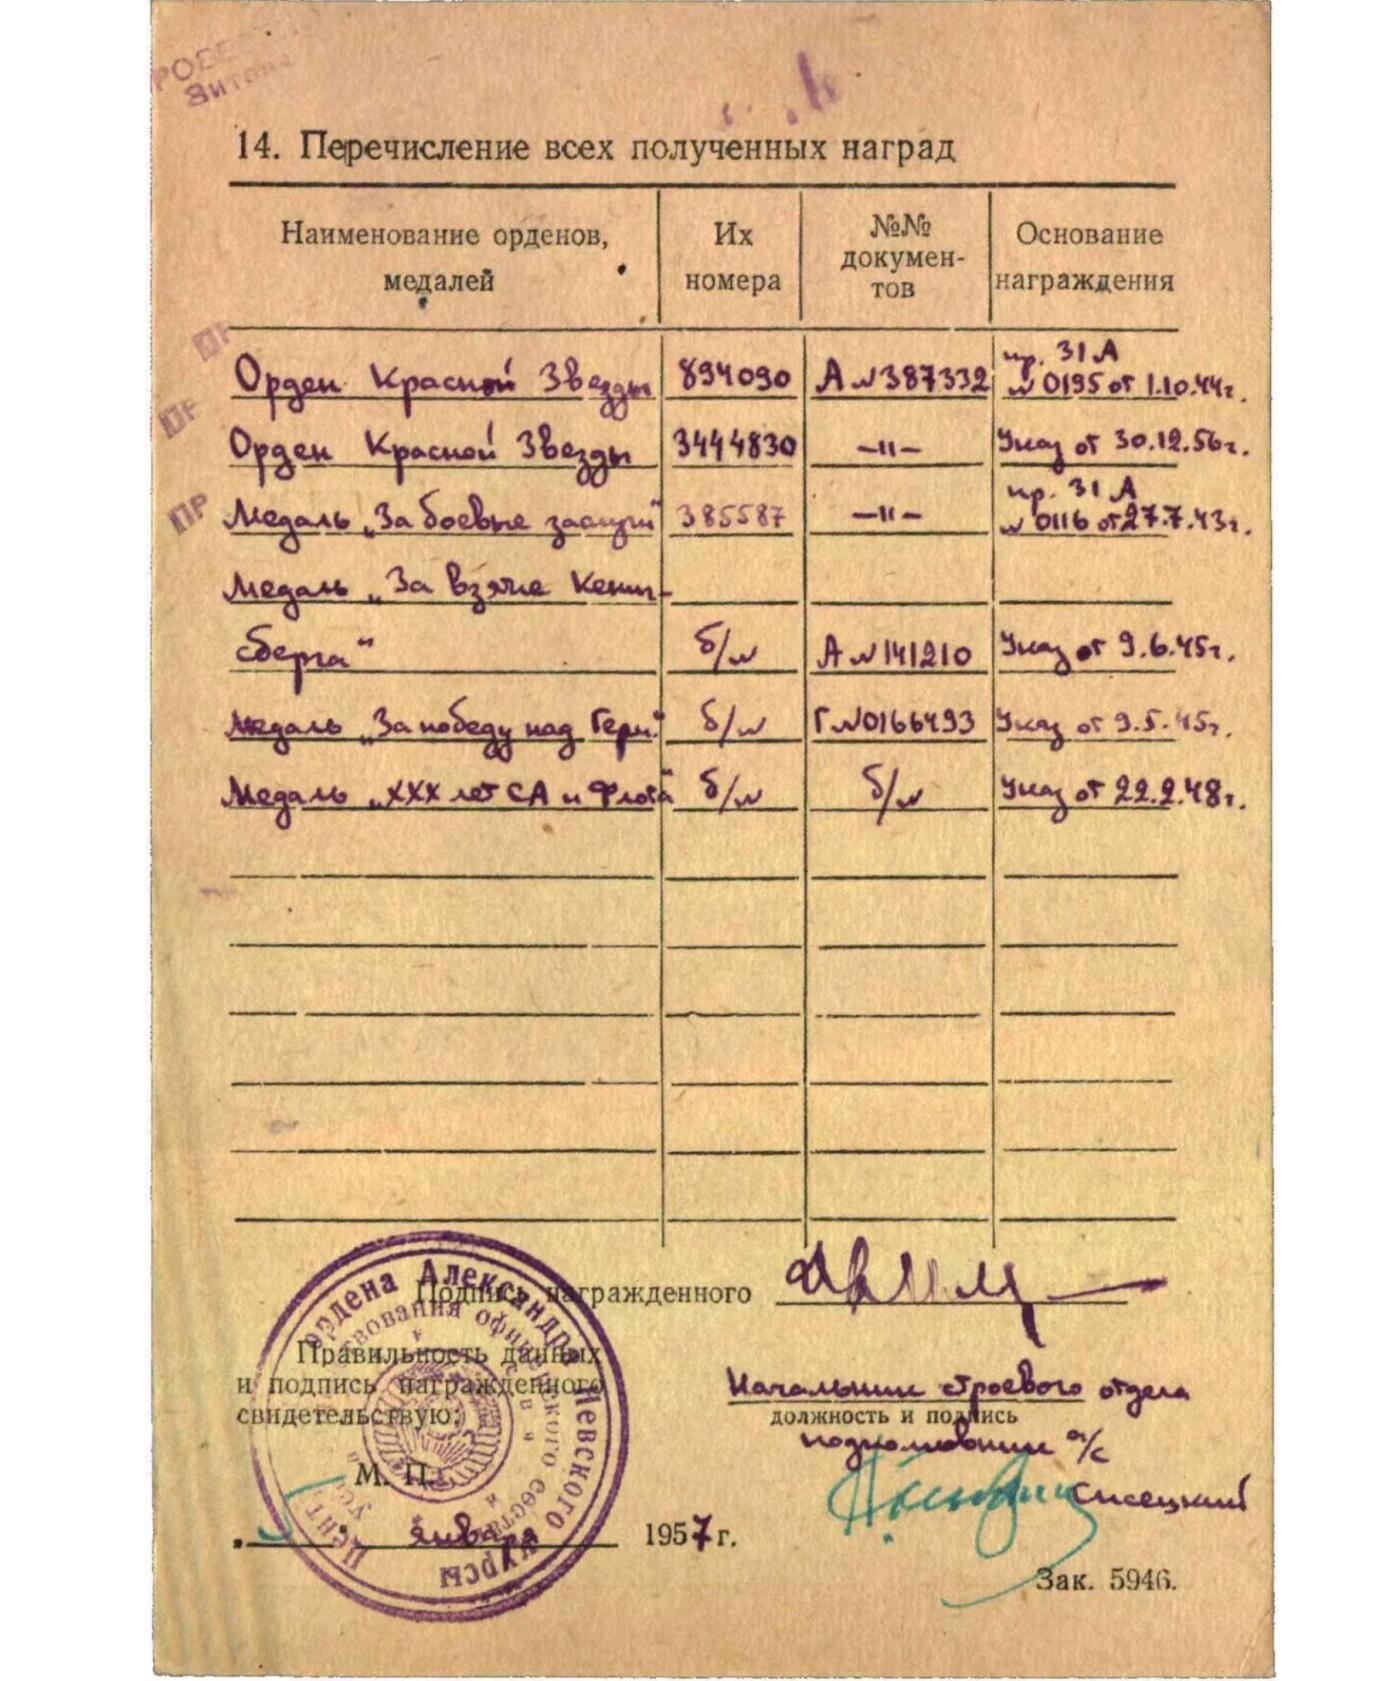 14. Перечисление всех полученных наград
Наименование орденов, медалей
Их номера
№№ докумен-тов
Основание награждения
пр. 31 А
Орден Красной Звезды 894090 А №387332 № 0195 от 1.10.44г.
Орден Красной Звезды 3444830 —"— Указ от 30.12.56г.
пр. 31 А
Медаль „За боевые заслуги" 385587 —"— № 0116 от 27.7.43г.
Медаль „За взятие Кениг-
сберга" б/№ А №141210 Указ от 9.6.45г.
Медаль „За победу над Герм." б/№ Г №0166493 Указ от 9.5.45г.
Медаль „XXX лет СА и Флота" б/№ б/№ Указ от 22.2.48г.
Подпись награжденного
Правильность данных
и подпись награжденного
свидетельствую:
Начальник строевого отдела
должность и подпись
подполковник а/с
М. П.
Сисецкий
5 января 1957 г.
Зак. 5946.
ордена Александра Невского курсы
офицерского состава
ПР
ПР
ПР